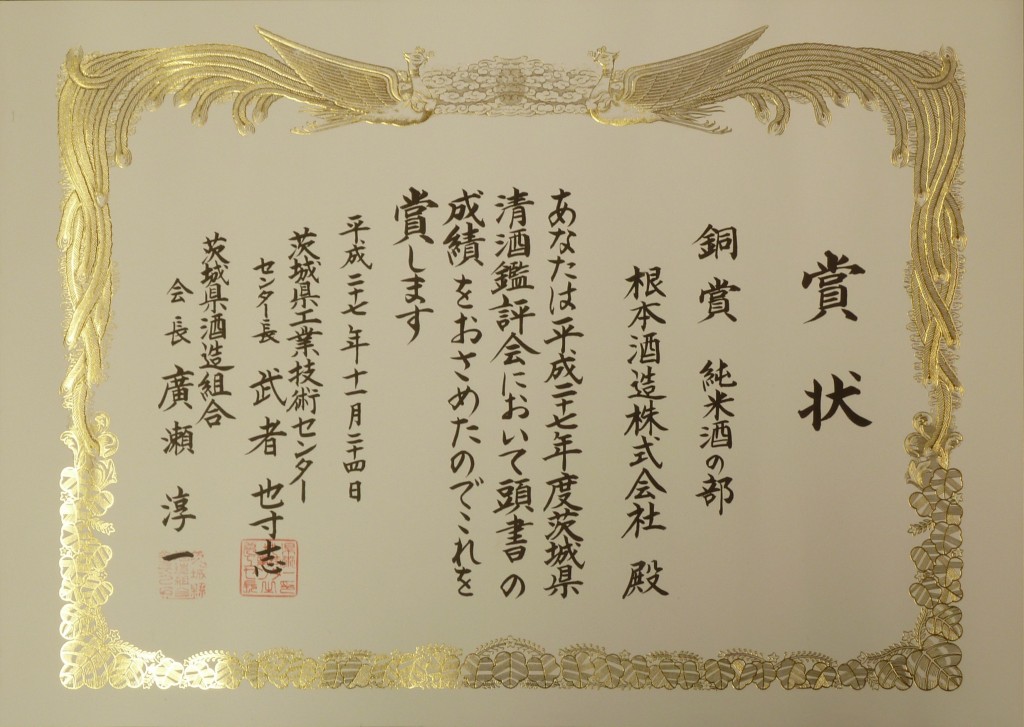 賞状
銅賞 純米酒の部
根本酒造株式会社 殿
あなたは平成二十七年度茨城県
清酒鑑評会において頭書の
成績をおさめたのでこれを
賞します
平成二十七年十一月二十四日
茨城県工業技術センター
センター長 武者也寸志
茨城県酒造組合
会長 廣瀬淳一